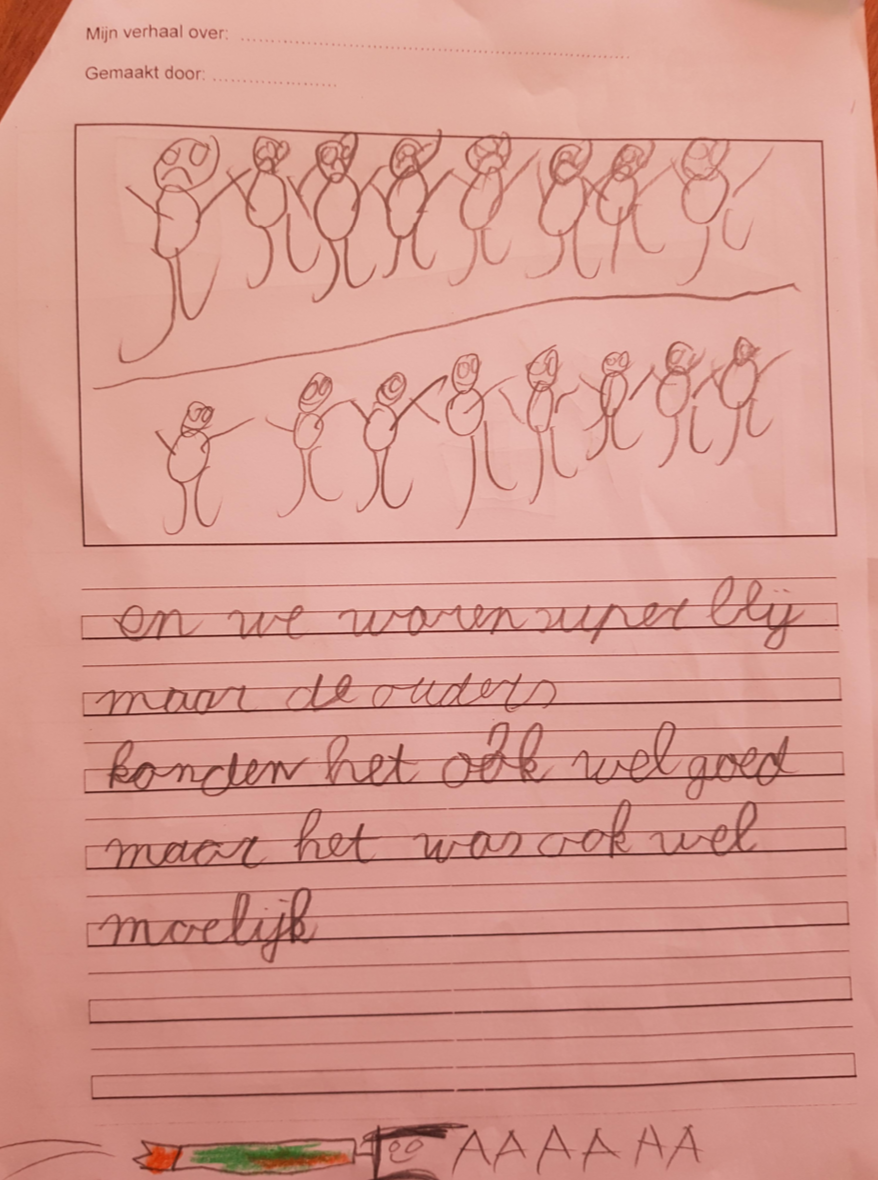 Mijn verhaal over:
Gemaakt door:
en we waren super blij
maar de ouders
konden het ook wel goed
maar het was ook wel
moelijk
AAAAAA